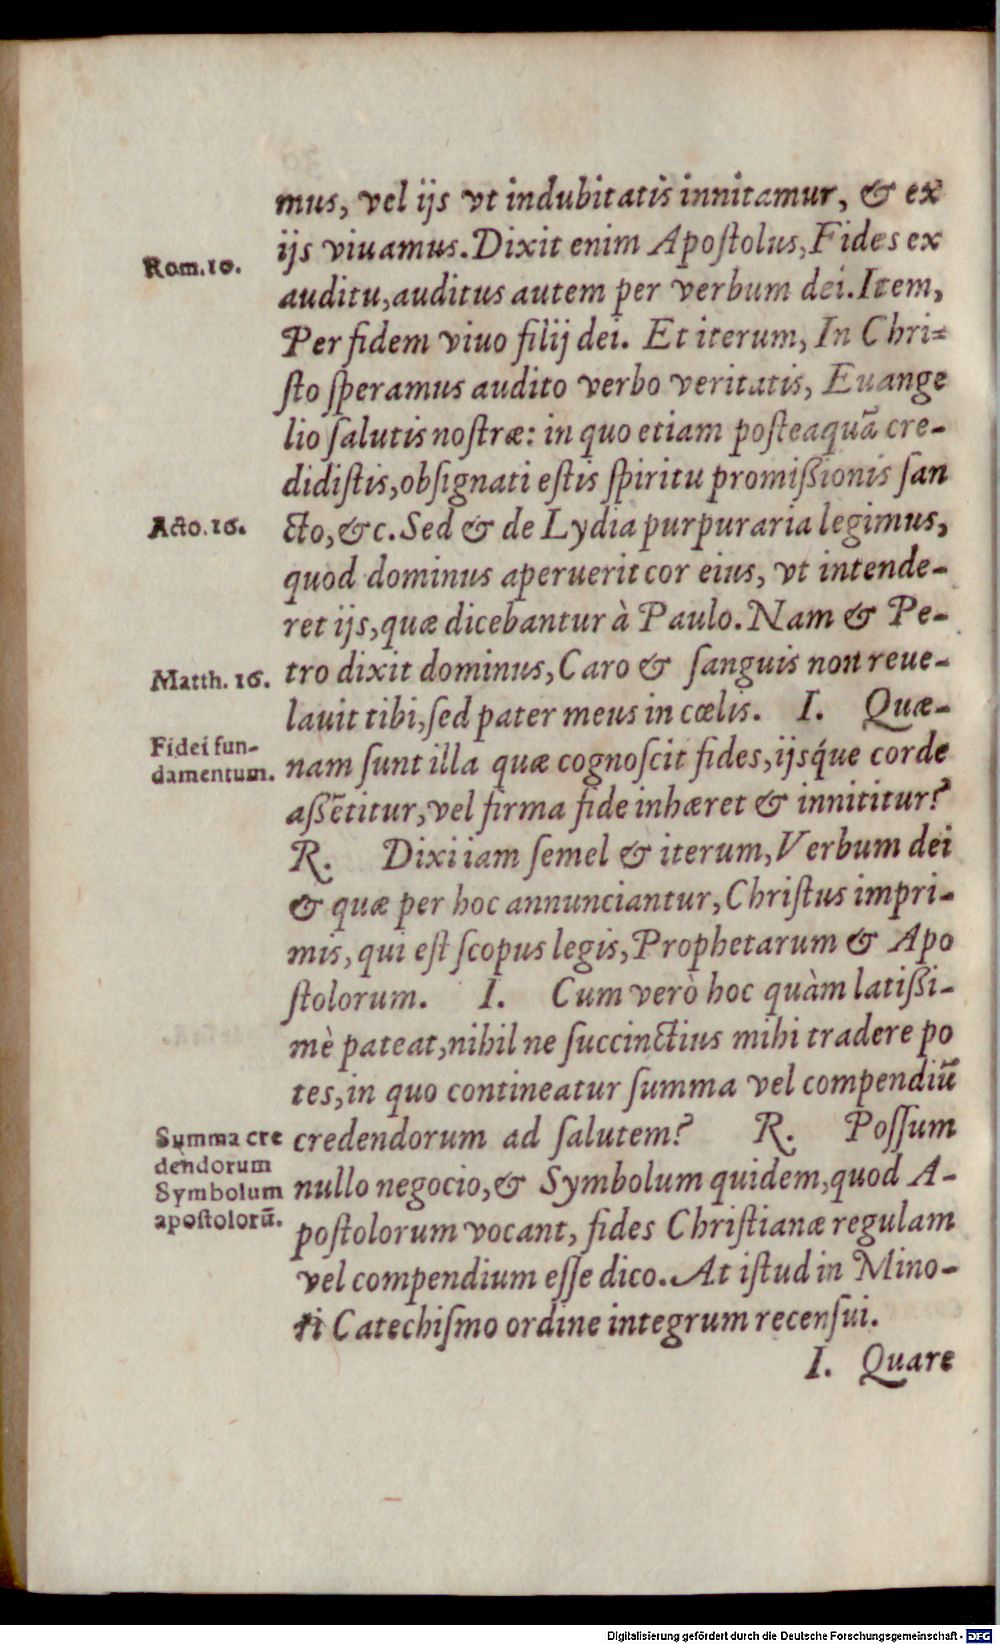 mus, vel ijs vt indubitatis innitamur, & ex
ijs viuamus. Dixit enim Apoſtolus, Fides ex
Rom. 10.
auditu, auditus autem per verbum dei. Item,
Per fidem viuo filij dei. Et iterum, In Chri-
ſto ſperamus audito verbo veritatis, Euange
lio ſalutis noſtræ: in quo etiam poſteaquã cre-
didiſtis, obſignati eſtis ſpiritu promißionis ſan
Acto. 16.
cto, &c. Sed & de Lydia purpuraria legimus,
quod dominus aperuerit cor eius, vt intende-
ret ijs, quæ dicebantur à Paulo. Nam & Pe-
Matth. 16.
tro dixit dominus, Caro & ſanguis non reue-
lauit tibi, ſed pater meus in cœlis. I. Quæ-
Fidei fun-
damentum.
nam ſunt illa quæ cognoſcit fides, ijsq́ue corde
aßẽtitur, vel firma fide inhæret & innititur?
R. Dixi iam ſemel & iterum, Verbum dei
& quæ per hoc annunciantur, Chriſtus impri-
mis, qui eſt ſcopus legis, Prophetarum & Apo
ſtolorum. I. Cum verò hoc quàm latißi-
mè pateat, nihil ne ſuccinctius mihi tradere po
tes, in quo contineatur ſumma vel compendiũ
Summa cre
dendorum
Symbolum
apoſtolorũ.
credendorum ad ſalutem? R. Poſſum
nullo negocio, & Symbolum quidem, quod A-
poſtolorum vocant, fides Chriſtianæ regulam
vel compendium eſſe dico. At iſtud in Mino-
ri Catechiſmo ordine integrum recenſui.
I. Quare
Digitalisierung gefördert durch die Deutsche Forschungsgemeinschaft - DFG